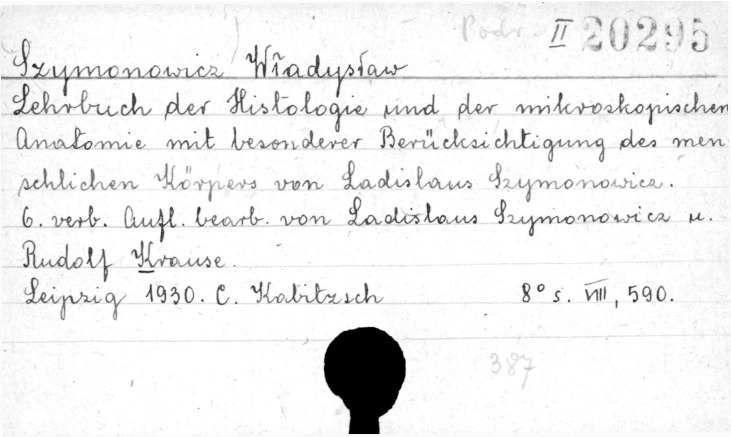 Podr. II 20295
Szymonowicz Władysław
Lehrbuch der Histologie und der mikroskopischen
Anatomie mit besonderer Berücksichtigung des men
schlichen Körpers von Ladislaus Szymonowicz.
6. verb. Aufl. bearb. von Ladislaus Szymonowicz u.
Rudolf Krause.
Leipzig 1930. C. Kabitzsch 8° s. VIII, 590.
387